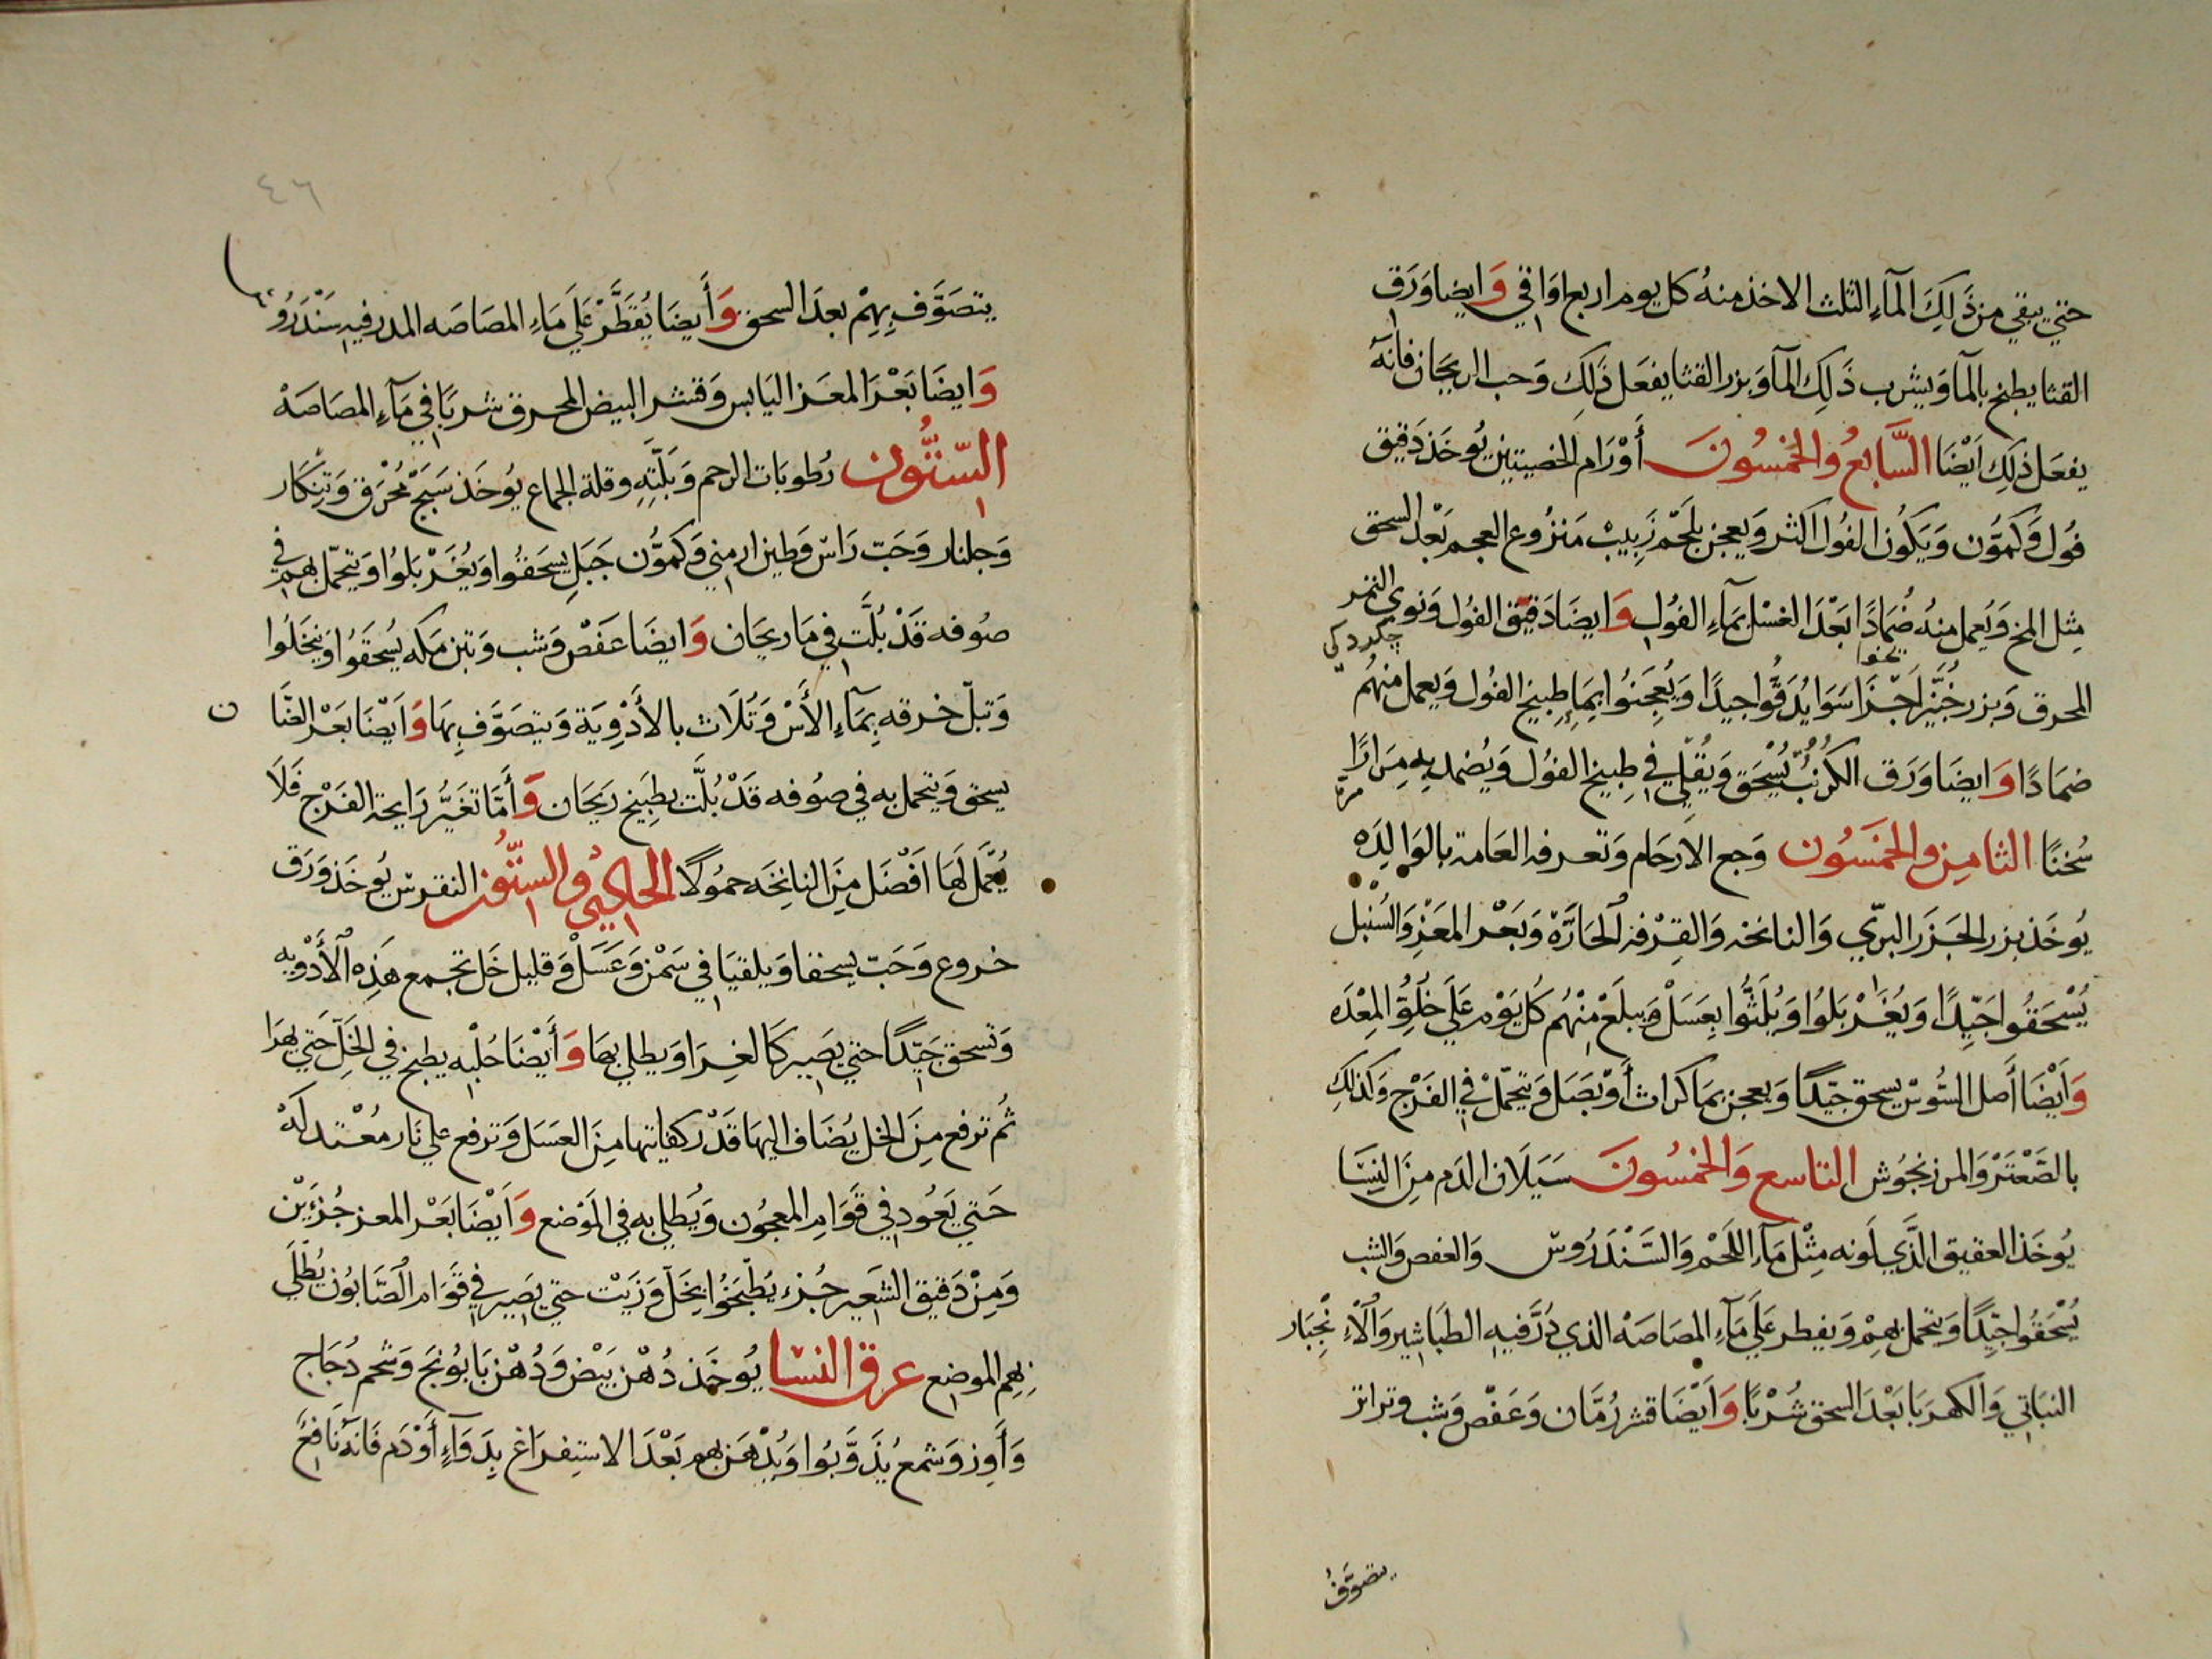 حتي يبقي من ذَلِكَ المآءِ الثلث الاخذ منهُ كل يوم اربع اوَاقي وَايضا وَرَق
القثا يطبخ بالمآ وَيشرب ذَلِك المآ وَبزر القثا يفعَل ذَلِكَ وَحب الريحَان فانهٓ
يفعَل ذلِك اَيْضَا السَّابعُ وَالخمسُونَ أَوْرَام الخصيتين يُوخَذ دَقيق
فُول وَكمُّون وَيَكُون الفُول اكثر وَيعجن بلَحْم زَبيبْ مَنزُوع العجم بَعْد السحق
مِثل المخ وَيُعمل منهُ ضُمَادًا بَعْدَ الغسْل بمآءِ الفُول وَايضَا دَقيق الفُول وَنوي التمر
جكردكى
المحرق وَبزر خُبَّيْز اَجْزَا سَوَا يُدَقُّوا جيدًا وَيُعجِنُوا بمِاءِ طِبيخ الفُول وَيعمل منهُم
ضمَادًا وَايضَا وَرَق الكرُنْبُ يُسْحَق وَيُقلي في طِبيخ الفُول وَيُضمد به مِرَارًا
سُخنًا الثامِن والخمَسُون وَجع الارحَام وَتعرفه العَامة بالوَالِدَه
يُوخَذ بزر الجَزر البرّي وَالنانخه وَالقِرْفه الحَارَّة وَبَعْر المعَزْ وَالسُنْبل
يُسْحَقُوا جَيّدًا وَيُغَرْبَلُوا وَيُلَثُّوا بِعسَلْ وَيبلَعْ مِنْهُم كُل يَوْم عَلَي خُلُوِّ المِعْدَه
وَاَيْضَا أَصل السُّوسْ يسحق جيّدًا وَيعجن بمَا كرات أَوْ بَصَل وَيتحَمّلْ في الفَرْج وَكذلك
بالصَعْتَرْ وَالمرزنجُوش التاسع وَالخمسُونَ سَيَلَان الدَم مِنَ النِسَا
يُوخَذ العقيق الذَّي لَونه مِثْل مَآءِ اللَحْم وَالسَّنْدَرُوسْ وَالعفص وَالشب
يُسْحَقُوا جيّدًا وَيتحمل بهِمْ وَيفطر عَلَي مَآءِ المصَاصَهْ الذي دُرَّ فيهِ الطبَاشِير وَالْاءَنْجِبَار
النبَاتي وَالكهرَبَا بَعْدَ السحق شُرْبًا وَاَيْضَا قشر رُمَّان وَعَفْص وَشب وتراتر
يتصَوَّف
٤٦
يتصَوَّف بِهِمْ بعدَ السحق وَأَيضَا يُقطَّرْ عَلَي مَاءِ المصَاصَه المدر فيهِ سَنْدَرُوس
وَايضَا بَعْرَ المعَز اليَابس وَقشر البيض المحرق شربًا في مَآءِ المصَاصَهْ
السّتُّون رُطوبَات الرحم وَبَلَّتِهِ وقلة الجماع يُوخَذ سَبَجْ مُحْرَق وَتِنكَار
وَجلنار وَحَبّ رَاسْ وَطين ارمني وَكمُّون جَبَلِي يسحَقُوا وَيُغَرْبَلُوا وَيتحمّل بهم في
صُوفه قَدْ بُلَّت في مَا ريحَان وَايضَا عَفصْ وَشب وَتبن مَكه يُسْحَقُوا وَينخَلُوا
وَتبلّ خرقه بِمَآءِ الأَسْ وَتُلَاث بالأَدْوِيَة وَيتصَوَّف بِهَا وَاَيْضَا بَعْر الضَّا
ن
يسحق وَيتحمل به في صُوفه قَدْ بُلَّت بطِبَيخ ريَحَان وَأَمَّا تغَيُّر رَايحة الفَرْج فَلَا
يُعْمَل لهَا اَفْضَل مِنَ النانِخَه حمُولًا الحَادِي وَالسِتّون النقرسْ يُوخَذ وَرَق
خروع وَحَبّ يسحقا وَيلقيَا في سَمْن وَعَسَلْ وَقليل خَل تجمع هَذِه الْأَدْوِيه
وَتسحق جَيّدًا حتي يَصِير كَالغرَا وَيطلي بهَا وَأَيْضَا حُلْبه يطبخ في الخَلِّ حَتي يهرَا
ثُم ترفع مِنَ الخل يُضَاف اليهَا قَدْر كفايتها مِنَ العسَل وَترفع علي نَار مُعْتدلَهْ
حَتي يَعُود في قَوَام المعجُون وَيُطلي به في المَوْضع وَاَيْضَا بَعْر المعز جُزءَيْن
وَمِنْ دَقيق الشَعير جُزء يُطْبَخُوا بِخَلّ وَزَيْت حتي يَصِير في قَوَام الصَّابُون يُطْلَي
بِهِم الموضع عرق النسا يُوخَذ دُهْن بَيْض وَدُهْن بَابُونَج وَشحم دُجَاج
وَأَوِز وَشمع يُذَوَّبُوا وَيُدْهَن بهم بَعْدَ الاستِفرَاغ بِدَوَآءٍ أَوْ دَم فَانهُ نَافِعٌ